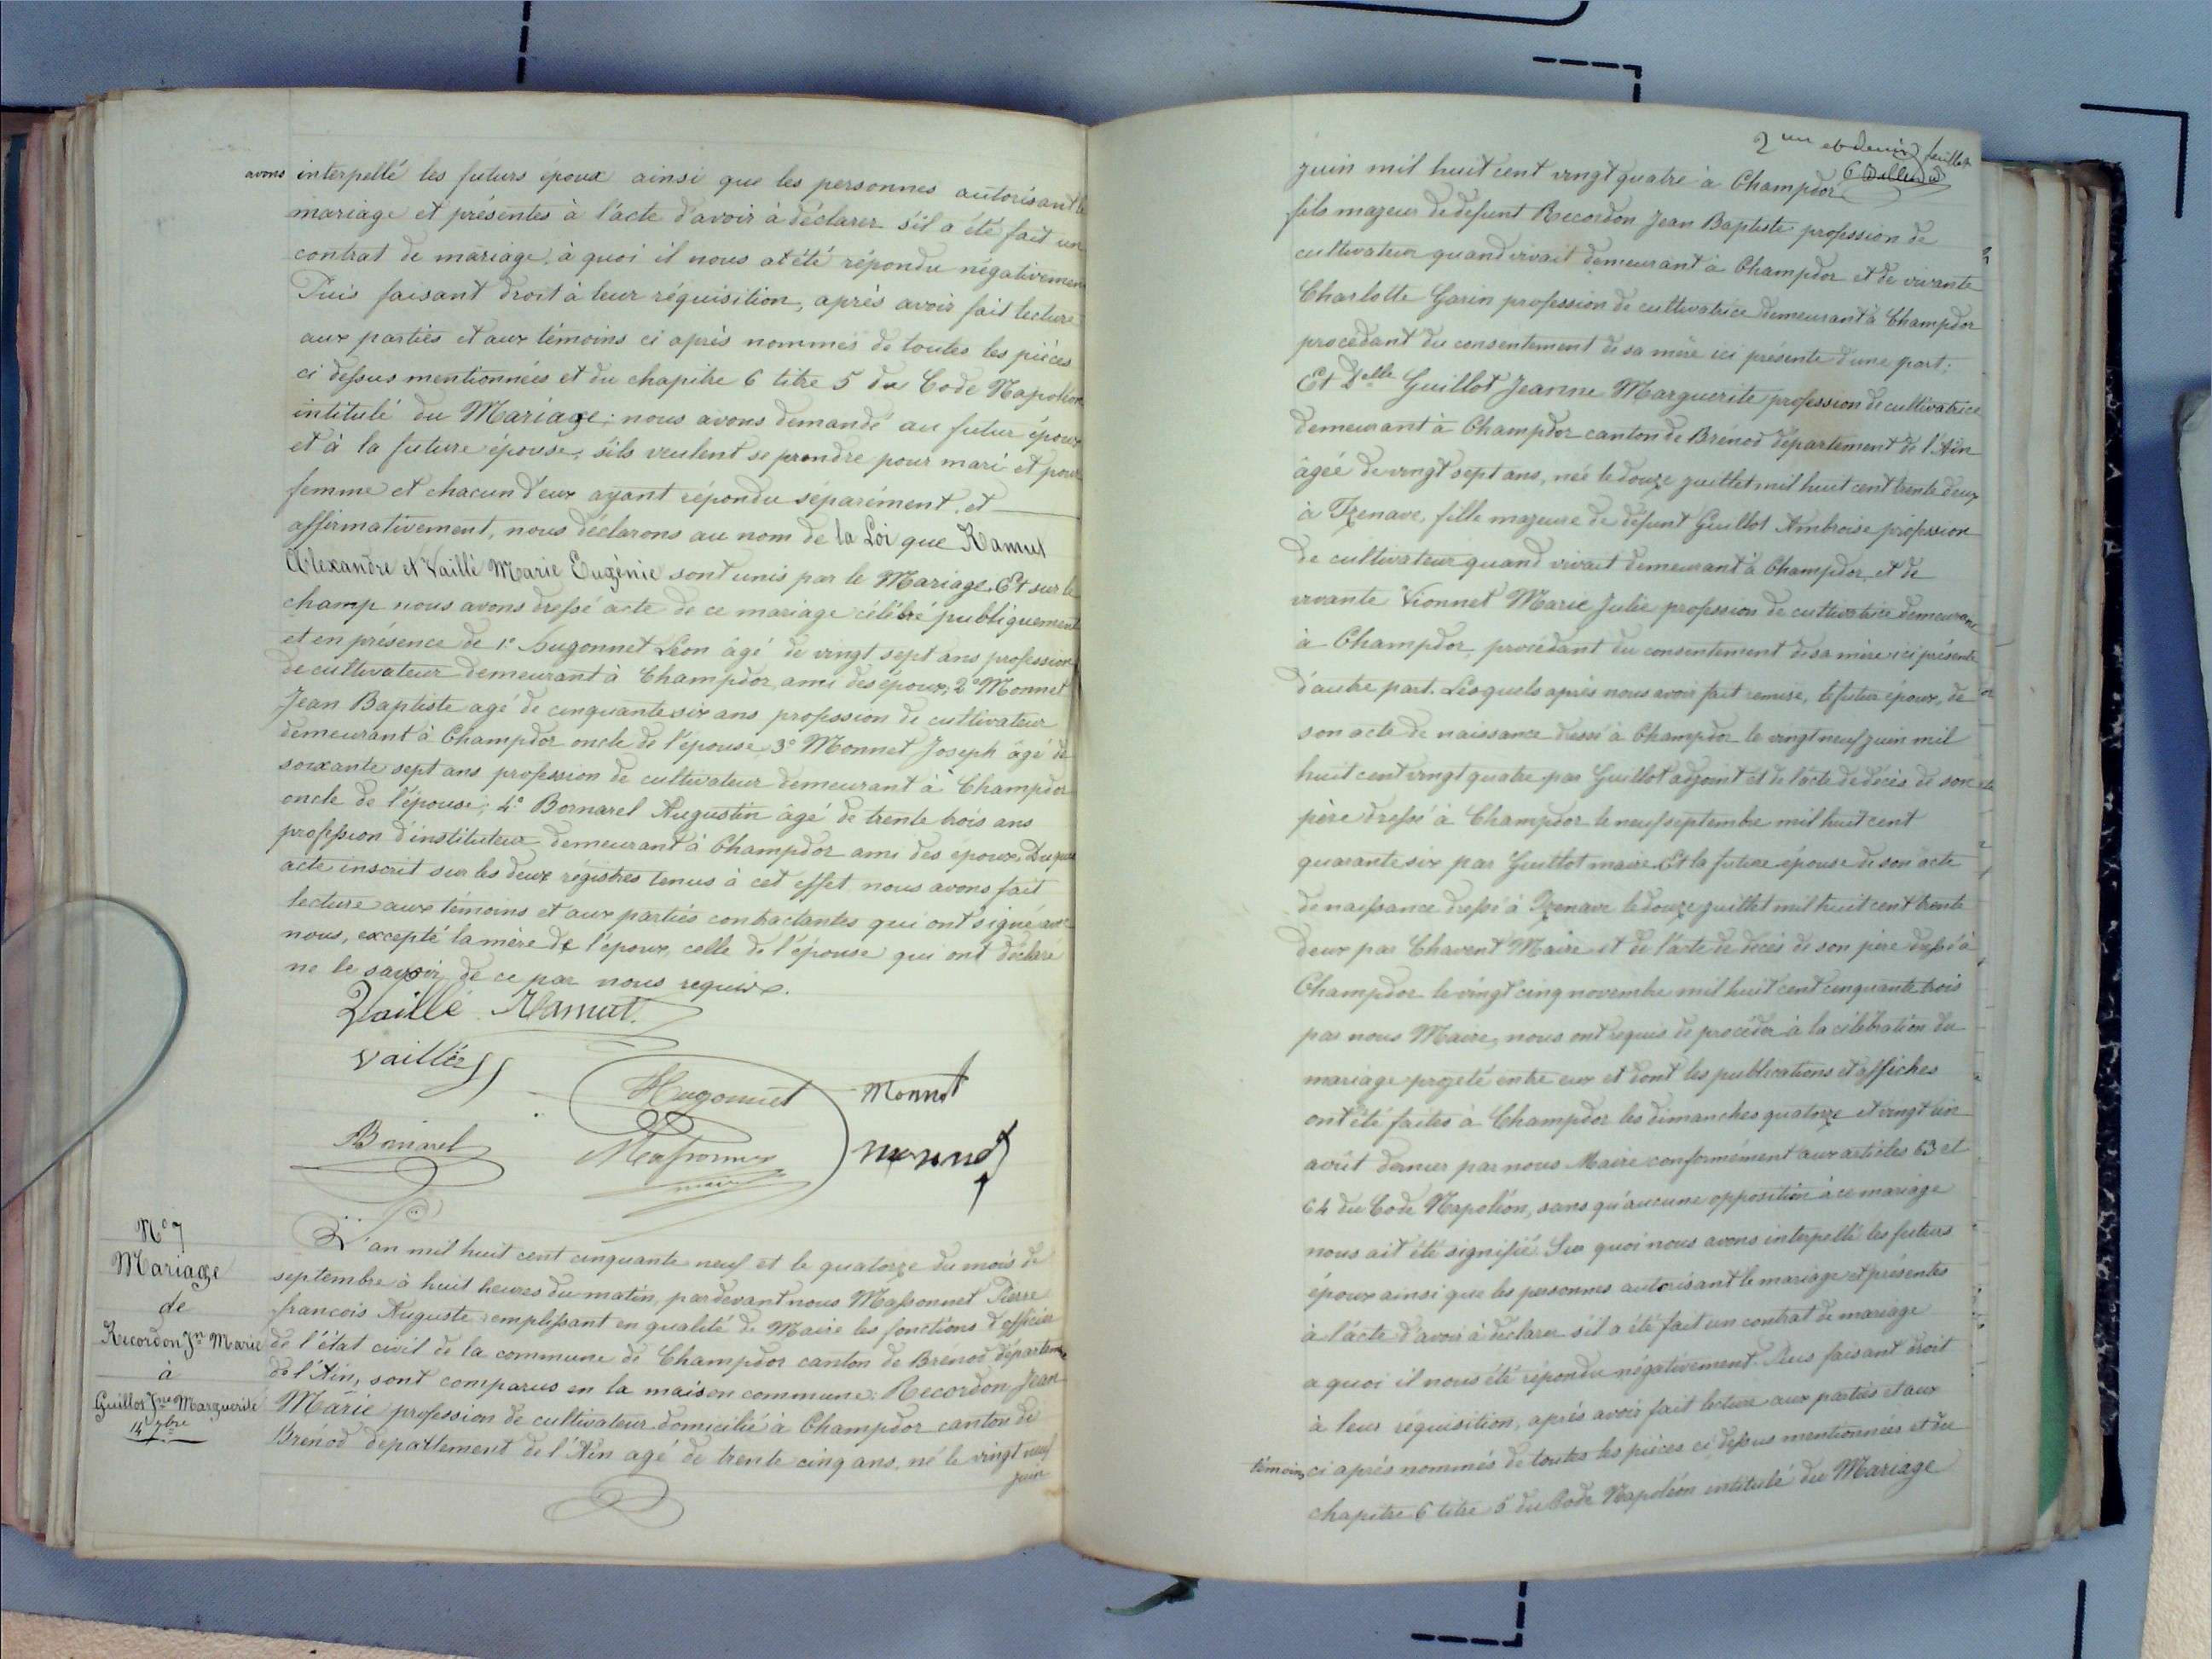 avons interpellé les futurs époux ainsi que les personnes autorisant le
mariage et présentes à l'acte d'avoir à déclarer s'il a été fait un
contrat de mariage, à quoi il nous a été répondu négativement
Puis faisant droit à leur réquisition, après avoir fait lecture
aux parties et aux témoins ci après nommés de toutes les pièces
ci dessus mentionnées et du chapitre 6 titre 5 du Code Napoléon
intitulé du Mariage; nous avons demandé au futur époux
et à la future épouse, s'ils veulent se prendre pour mari et pour
femme et chacun d'eux ayant répondu séparément et
affirmativement, nous déclarons au nom de la Loi que Ramut
Alexandre et Vaillé Marie Eugénie sont unis par le Mariage. Et sur le
champ nous avons dressé acte de ce mariage célébré publiquement
et en présence de 1° Hugonnet Léon âgé de vingt sept ans profession
de cultivateur demeurant à Champdor, ami des époux; 2° Monnet
Jean Baptiste agé de cinquante six ans profession de cultivateur
demeurant à Champdor oncle de l'épouse 3° Monnet Joseph âgé de
soixante sept ans profession de cultivateur demeurant à Champdor
oncle de l'épouse; 4° Bornarel Augustin âgé de trente trois ans
profession d'instituteur demeurant à Champdor ami des époux. Duquel
acte inscrit sur les deux régistres tenus à cet effet nous avons fait
lecture aux témoins et aux parties contractantes qui ont signé avec
nous, excepté la mère de l'époux, celle de l'épouse qui ont déclaré
ne le savoir de ce par nous requise.
Vaillé Ramut
Vaillé
Hugonnet Monnet
Bornarel Massonnet Monnet
maire
N° 7
Mariage
de
Recordon Jn Marie
à
Guillot Jne Marguerite
14 7bre
L'an mil huit cent cinquante neuf et le quatorze du mois de
septembre à huit heures du matin, pardevant nous Massonnet Pierre
francois Auguste remplissant en qualité de Maire les fonctions d'officier
de l'état civil de la commune de Champdor canton de Brénod département
de l'Ain, sont comparus en la maison commune: Recordon Jean
Marie profession de cultivateur domicilié à Champdor canton de
Brenod departement de l'Ain agé de trente cinq ans, né le vingt neuf
juin
feuillet
juin mil huit cent vingt quatre à Champdor
fils majeur de défunt Recordon Jean Baptiste profession de
cultivateur quand vivait demeurant à Champdor et de vivante
Charlotte Garin profession de cultivatrice demeurant à Champdor
procédant du consentement de sa mère ici présente d'une part;
Et Delle Guillot Jeanne Marguerite profession de cultivatrice
demeurant à Champdor canton de Brénod département de l'Ain
âgée de vingt sept ans, née le douze juillet mil huit cent trente deux
à Izenave, fille majeure de défunt Guillot Ambroise profession
de cultivateur quand vivait demeurant à Champdor, et de
vivante Vionnet Marie Julie profession de cultivatrice demeurant
à Champdor, procédant du consentement de sa mère ici présente
d'autre part. Lesquels après nous avoir fait remise, le futur époux, de
son acte de naissance dressé à Champdor le vingt neuf juin mil
huit cent vingt quatre par Guillot adjoint et de l'acte de décès de son
père dressé à Champdor le neuf septembre mil huit cent
quarante six par Guillot maire. Et la future épouse de son acte
de naissance dressé à Izenave le douze juillet mil huit cent trente
deux par Chavent Maire et de l'acte de décès de son père dressé à
Champdor le vingt cinq novembre mil huit cent cinquante trois
par nous Maire, nous ont requis de procéder à la célébration du
mariage projeté entre eux et dont les publications et affiches
ont été faites à Champdor les dimanches quatorze et vingt un
août dernier par nous Maire conformément aux articles 63 et
64 du Code Napoléon, sans qu'aucune opposition à ce mariage
nous ait été signifié. Sur quoi nous avons interpellé les futurs
époux ainsi que les personnes autorisant le mariage et présentes
à l'acte d'avoir à déclarer s'il a été fait un contrat de mariage
a quoi il nous été répondu négativement. Puis faisant droit
à leur réquisition, après avoir fait lecture aux parties et aux
témoins ci après nommés de toutes les pièces ci dessus mentionnées et du
chapitre 6 titre 5 du Code Napoléon intitulé du Mariage